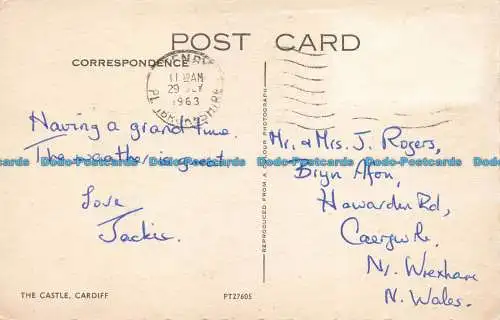 POST CARD
CORRESPONDENCE
11 AM
29
1963
Having a grand time.
The weather is great
Love
Jackie.
Mr. & Mrs. J. Rogers,
Bryn Afon,
Hawarden Rd,
Caergwrle
Nr. Wrexham
N. Wales.
REPRODUCED FROM A COLOUR PHOTOGRAPH
THE CASTLE, CARDIFF
PT27605
Dodo-Postcards Dodo-Postcards Dodo-Postcards Dodo-Postcards Dodo-Postcards